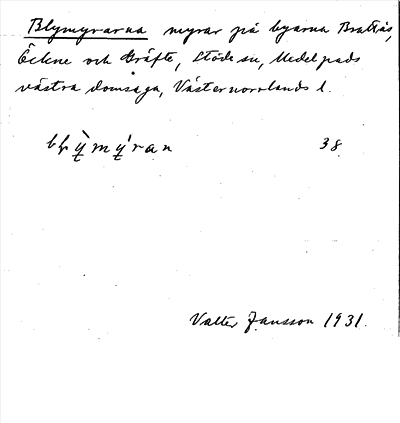 Blymyrarna myrar på byarna Brattås,
Öckne och Gräfte, Stöde sn, Medelpads
västra domsaga, Västernorrlands l.
38
Valter Jansson 1931.